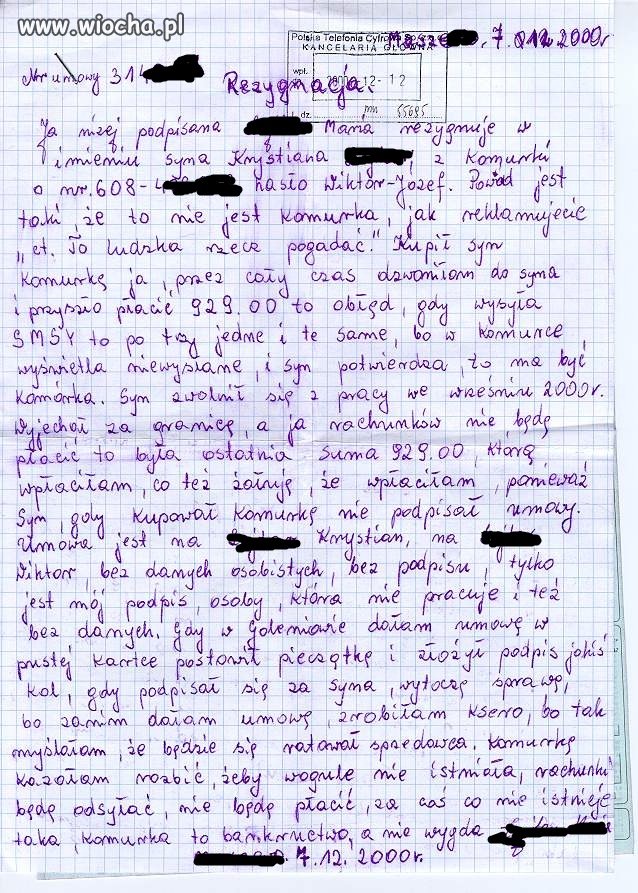 www.wiocha.pl
Polska Telefonia Cyfrowa
KANCELARIA GŁÓWNA
wpł.
2000 -12- 12
dz. 55695
7.012.2000r
Nr umowy 314
Rezygnacja.
Ja niżej podpisana Maria rezygnuje w
imieniu syna Krystiana , z komurki
o nr. 608-4 hasło Wiktor-Józef. Powód jest
taki, że to nie jest komurka, jak reklamujecie
„et. To ludzka rzecz pogadać." Kupił syn
komurkę ja, przez cały czas dzwoniłam do syna
i przyszło płacić 929.00 to obłęd, gdy wysyła
SMSY to po trzy jedne i te same, bo w komurce
wyświetla niewysłane, i syn potwierdza, to ma być
komórka. Syn zwolnił się z pracy we wrześniu 2000r.
Wyjechał za granicę, a ja rachunków nie będę
płacić to była ostatnia suma 929.00, którą
wpłaciłam, co też żałuję, że wpłaciłam, ponieważ
Syn, gdy kupował komurkę nie podpisał umowy.
Umowa jest na Krystian, na
Wiktor, bez danych osobistych, bez podpisu, tylko
jest mój podpis, osoby, która nie pracuje i też
bez danych. Gdy w Goleniowie dałam umowę w
pustej kartce postawił pieczątkę i złożył podpis jakiś
Kol, gdy podpisał się za syna, wytoczę sprawę,
bo zanim dałam umowę, zrobiłam ksero, bo tak
myślałam, że będzie się ratował sprzedawca. Komurkę
kazałam rozbić, żeby wogule nie istniała, rachunki
będę odsyłać, nie będę płacić, za coś co nie istnieje
taka, komurka to bankructwo, a nie wygda
7.12.2000r.